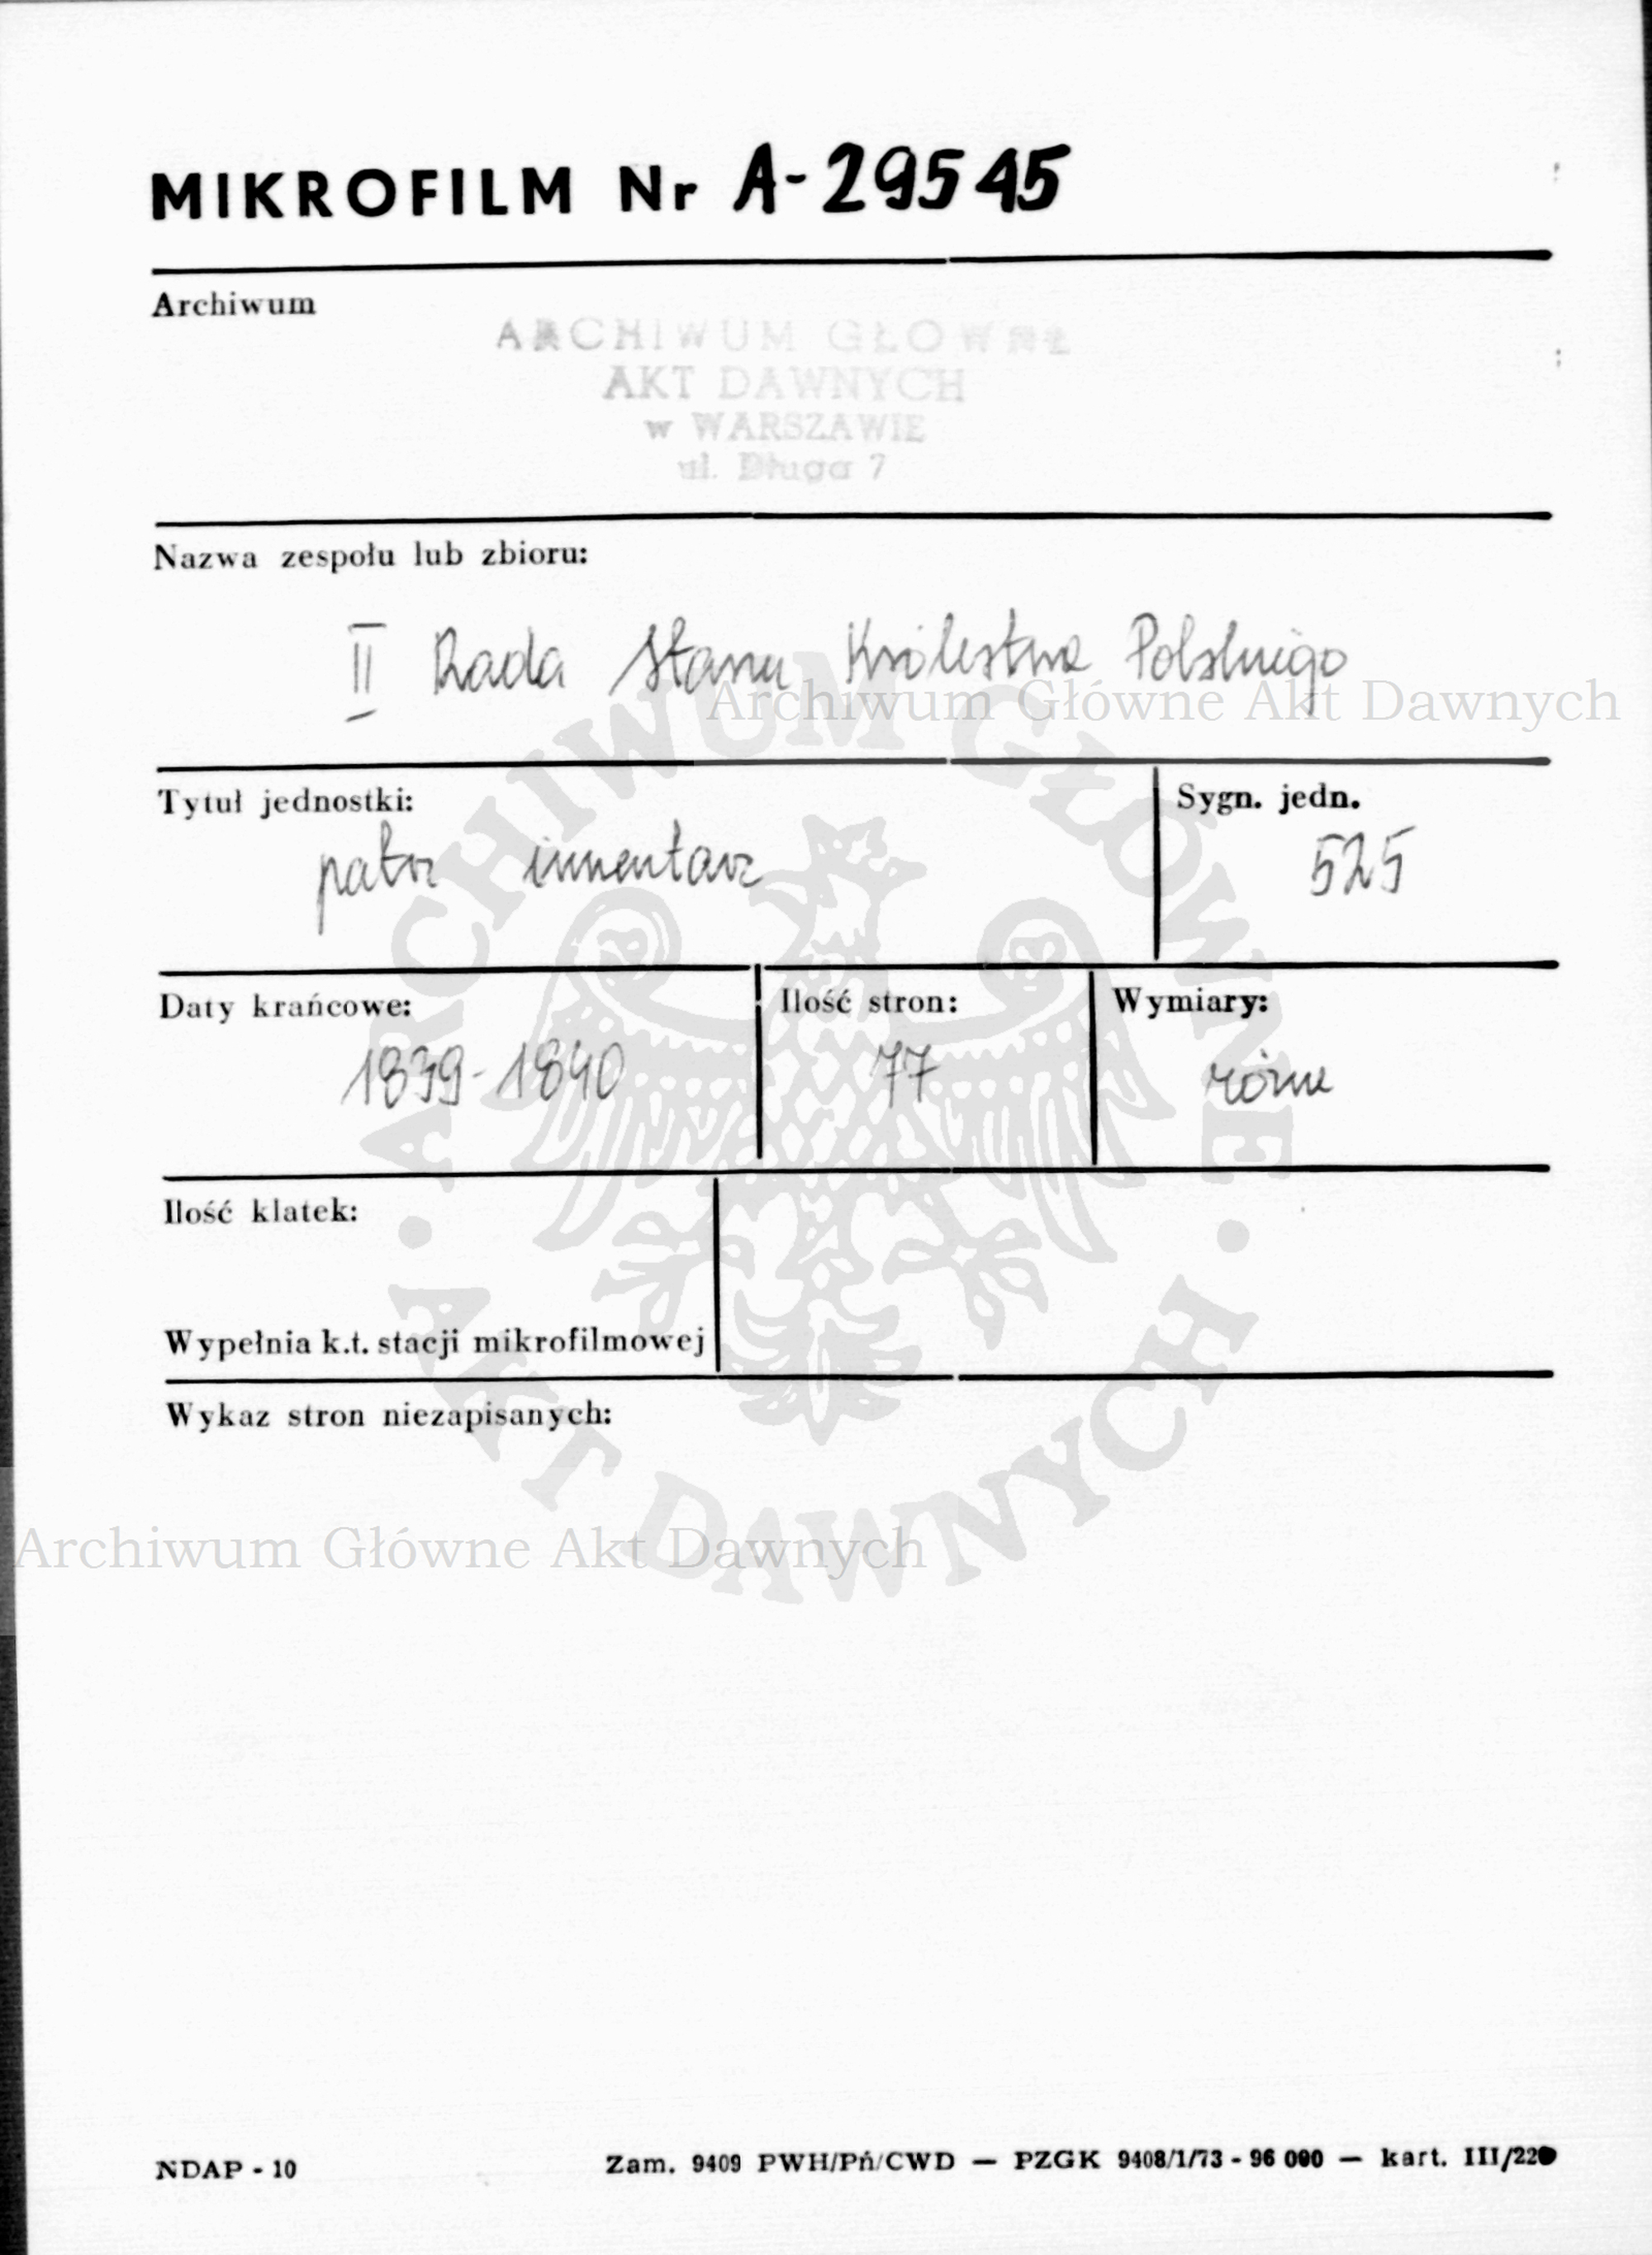 MIKROFILM Nr A-29545
Archiwum
ARCHIWUM GŁOWNE
AKT DAWNYCH
w WARSZAWIE
ul. Długa 7
Nazwa zespołu lub zbioru:
II Rada Stanu Królestwa Polskiego
Archiwum Główne Akt Dawnych
Tytuł jednostki:
Sygn. jedn.
patrz inwentarz
525
Daty krańcowe:
Ilość stron:
Wymiary:
1839-1840
77
różne
Ilość klatek:
Wypełnia k.t. stacji mikrofilmowej
Wykaz stron niezapisanych:
ARCHIWUM GŁÓWNE
· AKT DAWNYCH ·
Archiwum Główne Akt Dawnych
NDAP - 10
Zam. 9409 PWH/Pń/CWD — PZGK 9408/1/73 - 96 000 — kart. III/220